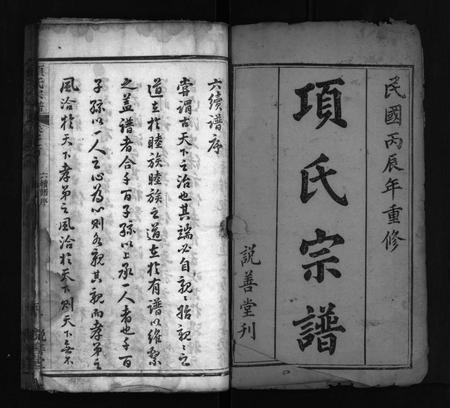 民國丙辰年重修
項氏宗譜
說善堂刊
六續譜序
嘗謂古天下之治也其端必自親親始親親之
道在於睦族睦族之道在於有譜以維繫
之蓋譜者合千百子孫以上承一人者也千百
子孫以一人之心為心則各親其親而孝弟之
風洽於天下孝弟之風洽於天下則天下無